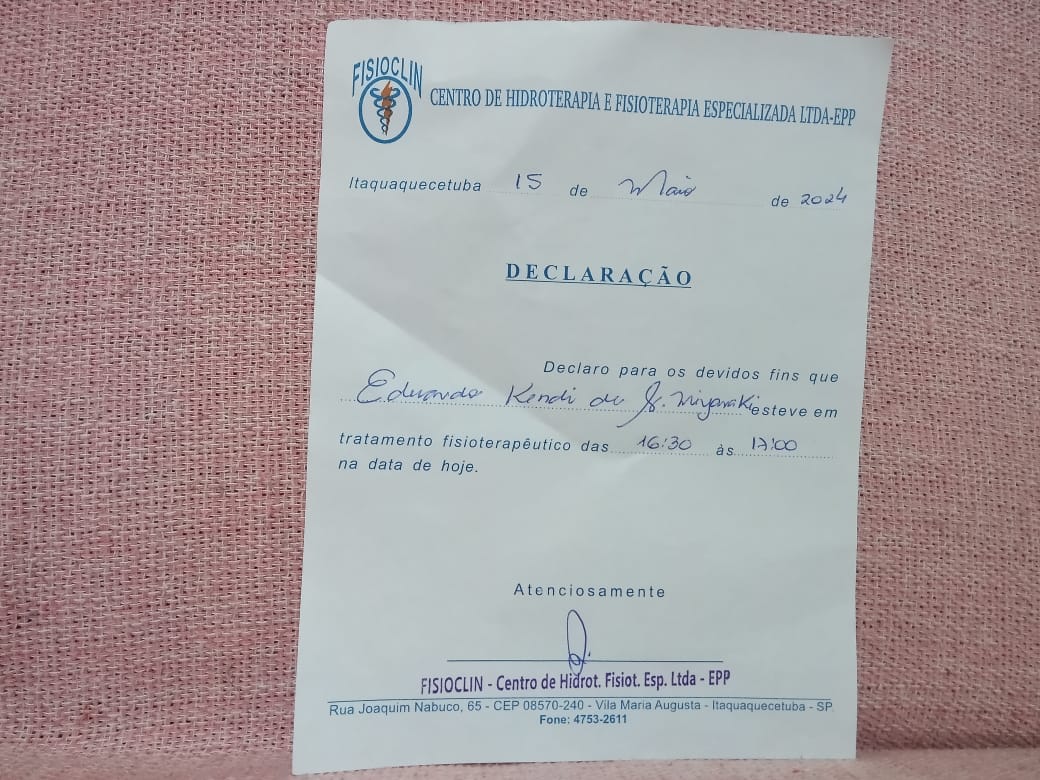 FISIOCLIN
CENTRO DE HIDROTERAPIA E FISIOTERAPIA ESPECIALIZADA LTDA-EPP
Itaquaquecetuba 15 de Maio de 2024
DECLARAÇÃO
Declaro para os devidos fins que
Eduardo Kendi de S. Miyasaki esteve em
tratamento fisioterapêutico das 16:30 às 17:00
na data de hoje.
Atenciosamente
FISIOCLIN - Centro de Hidrot. Fisiot. Esp. Ltda - EPP
Rua Joaquim Nabuco, 65 - CEP 08570-240 - Vila Maria Augusta - Itaquaquecetuba - SP
Fone: 4753-2611